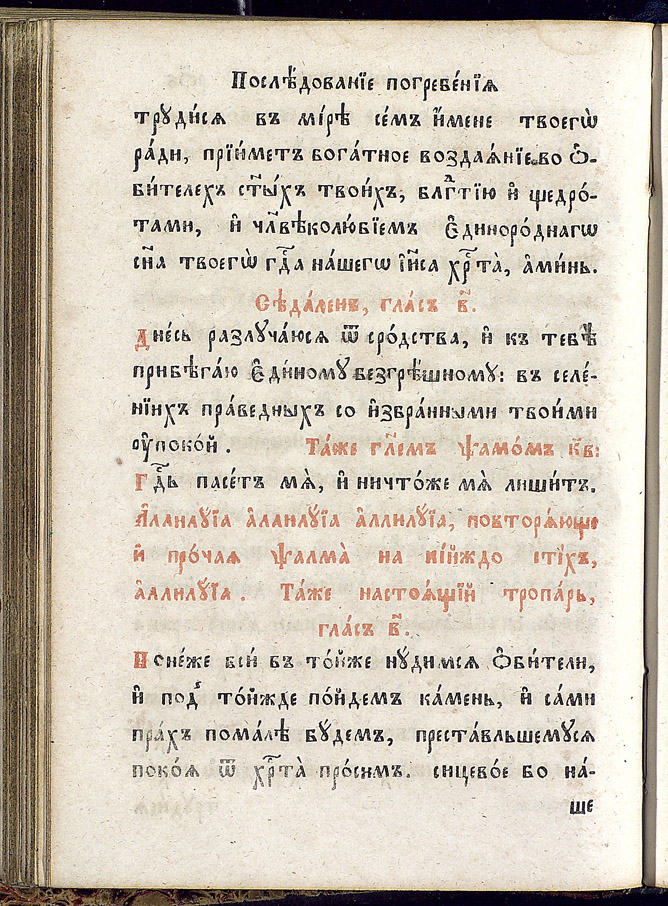 Послѣ́дованїе погребе́нїѧ
трꙋди́сѧ въ мі́рѣ се́мъ и҆́мене твоегѡ̀
ра́ди, прїи́метъ бога́тное воздаѧ́нїе во ѻ҆-
би́телехъ ст҃ы́хъ твои́хъ, блгⷣтїю и҆ щедро́-
тами, и҆ чл҃вѣколю́бїемъ є҆диноро́днагѡ
сн҃а твоегѡ̀ гдⷭ҇а на́шегѡ і҆и҃са хрⷭ҇та̀, а҆ми́нь.
Сѣда́ленъ, гла́съ в҃.
Дне́сь разлꙋча́юсѧ ѿ сро́дства, и҆ къ тебѣ̀
прибѣга́ю є҆ди́номꙋ безгрѣ́шномꙋ: въ селе́-
нїихъ пра́ведныхъ со и҆збра́нными твои́ми
ᲂу҆поко́й. Та́же гл҃емъ ѱамо́мъ к҃в:
Гдⷭ҇ь пасе́тъ мѧ̀, и҆ ничто́же мѧ̀ лиши́тъ.
А҆ллилꙋ́їа а҆ллилꙋ́їа а҆ллилꙋ́їа, повторѧ́юще
и҆ про́чаѧ ѱалма̀ на кі́йждо сті́хъ,
а҆ллилꙋ́їа. Та́же настоѧ́щїй тропа́рь,
гла́съ в҃.
Поне́же всѝ въ то́йже нꙋ́димсѧ ѻ҆би́тели,
и҆ под̾ то́йжде по́йдемъ ка́мень, и҆ са́ми
пра́хъ пома́лѣ бꙋ́демъ, преста́вльшемꙋсѧ
поко́ѧ ѿ хрⷭ҇та̀ про́симъ. сицево́е бо на́-
ше